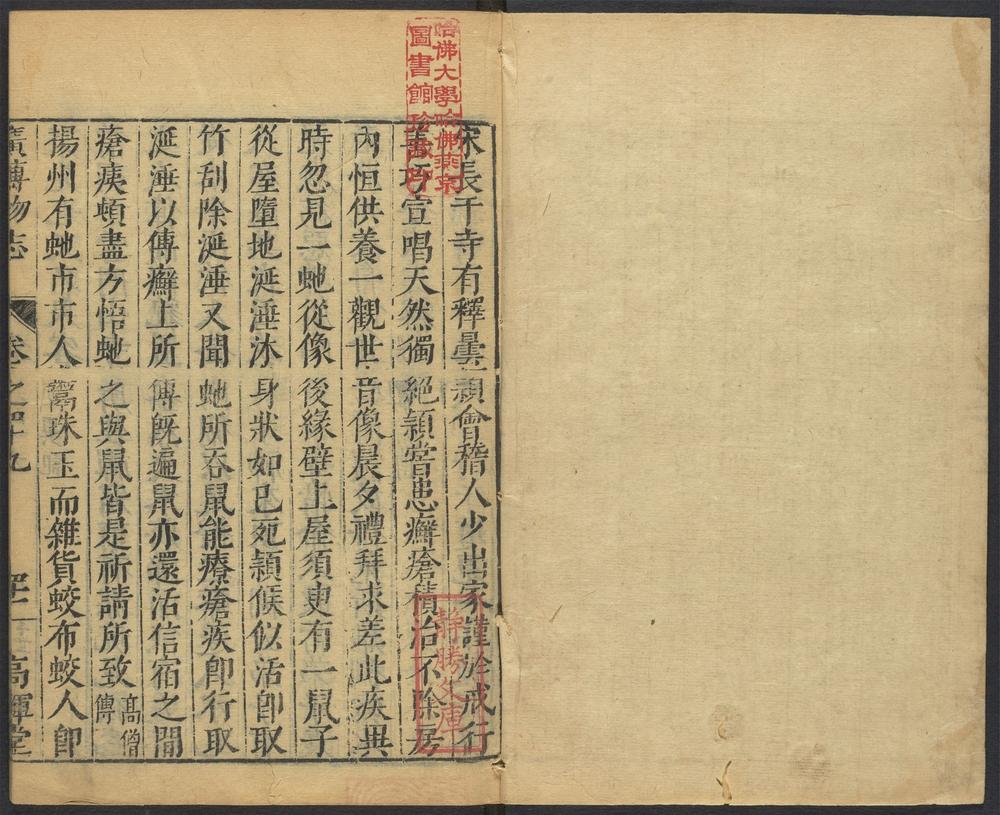 宋長干寺有釋曇穎會稽人少出家謹於戒行
善巧宣唱天然獨絕穎嘗患癬瘡積治不除房
內恒供養一觀世音像晨夕禮拜求差此疾異
時忽見一虵從像後緣壁上屋須臾有一鼠子
從屋墮地涎涶沐身狀如已死穎候似活卽取
竹刮除涎涶又聞虵所吞鼠能療瘡疾卽行取
涎涶以傅癬上所傅旣遍鼠亦還活信宿之間
瘡痍頓盡方悟虵之與鼠皆是祈請所致高僧傳
揚州有虵市市人鬻珠玉而雜貨蛟布蛟人卽
廣博物志 卷之四十九 高暉堂
哈佛大學哈佛燕京
圖書館珍藏印
靜勝文庫